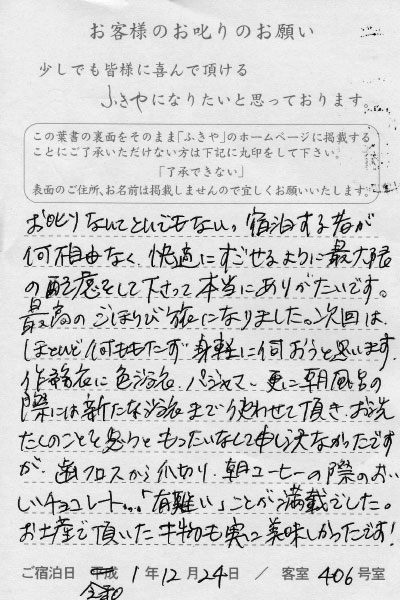 お客様のお叱りのお願い
少しでも皆様に喜んで頂ける
ふきやになりたいと思っております。
この葉書の裏面をそのまま「ふきや」のホームページに掲載する
ことにご了承いただけない方は下記に丸印をして下さい。
「了承できない」
表面のご住所、お名前は掲載しませんので宜しくお願いいたします。
お叱りなんてとんでもない。宿泊する者が
何不自由なく、快適にすごせるように最大限
の配慮をして下さって本当にありがたいです。
最高のごほうび旅になりました。次回は
ほとんど何ももたず身軽に伺おうと思います
作務衣に色浴衣、パジャマ、更に朝風呂の
際には新たな浴衣まで使わせて頂き、お洗
たくのことを思うともったいなくて申し訳なかったです
が、歯フロスから爪切り、朝コーヒーの際のおい
しいチョコレート...「有難い」ことが満載でした。
お土産で頂いた干物も実に美味しかったです!
ご宿泊日 平成 令和 1年12月24日 / 客室 406号室